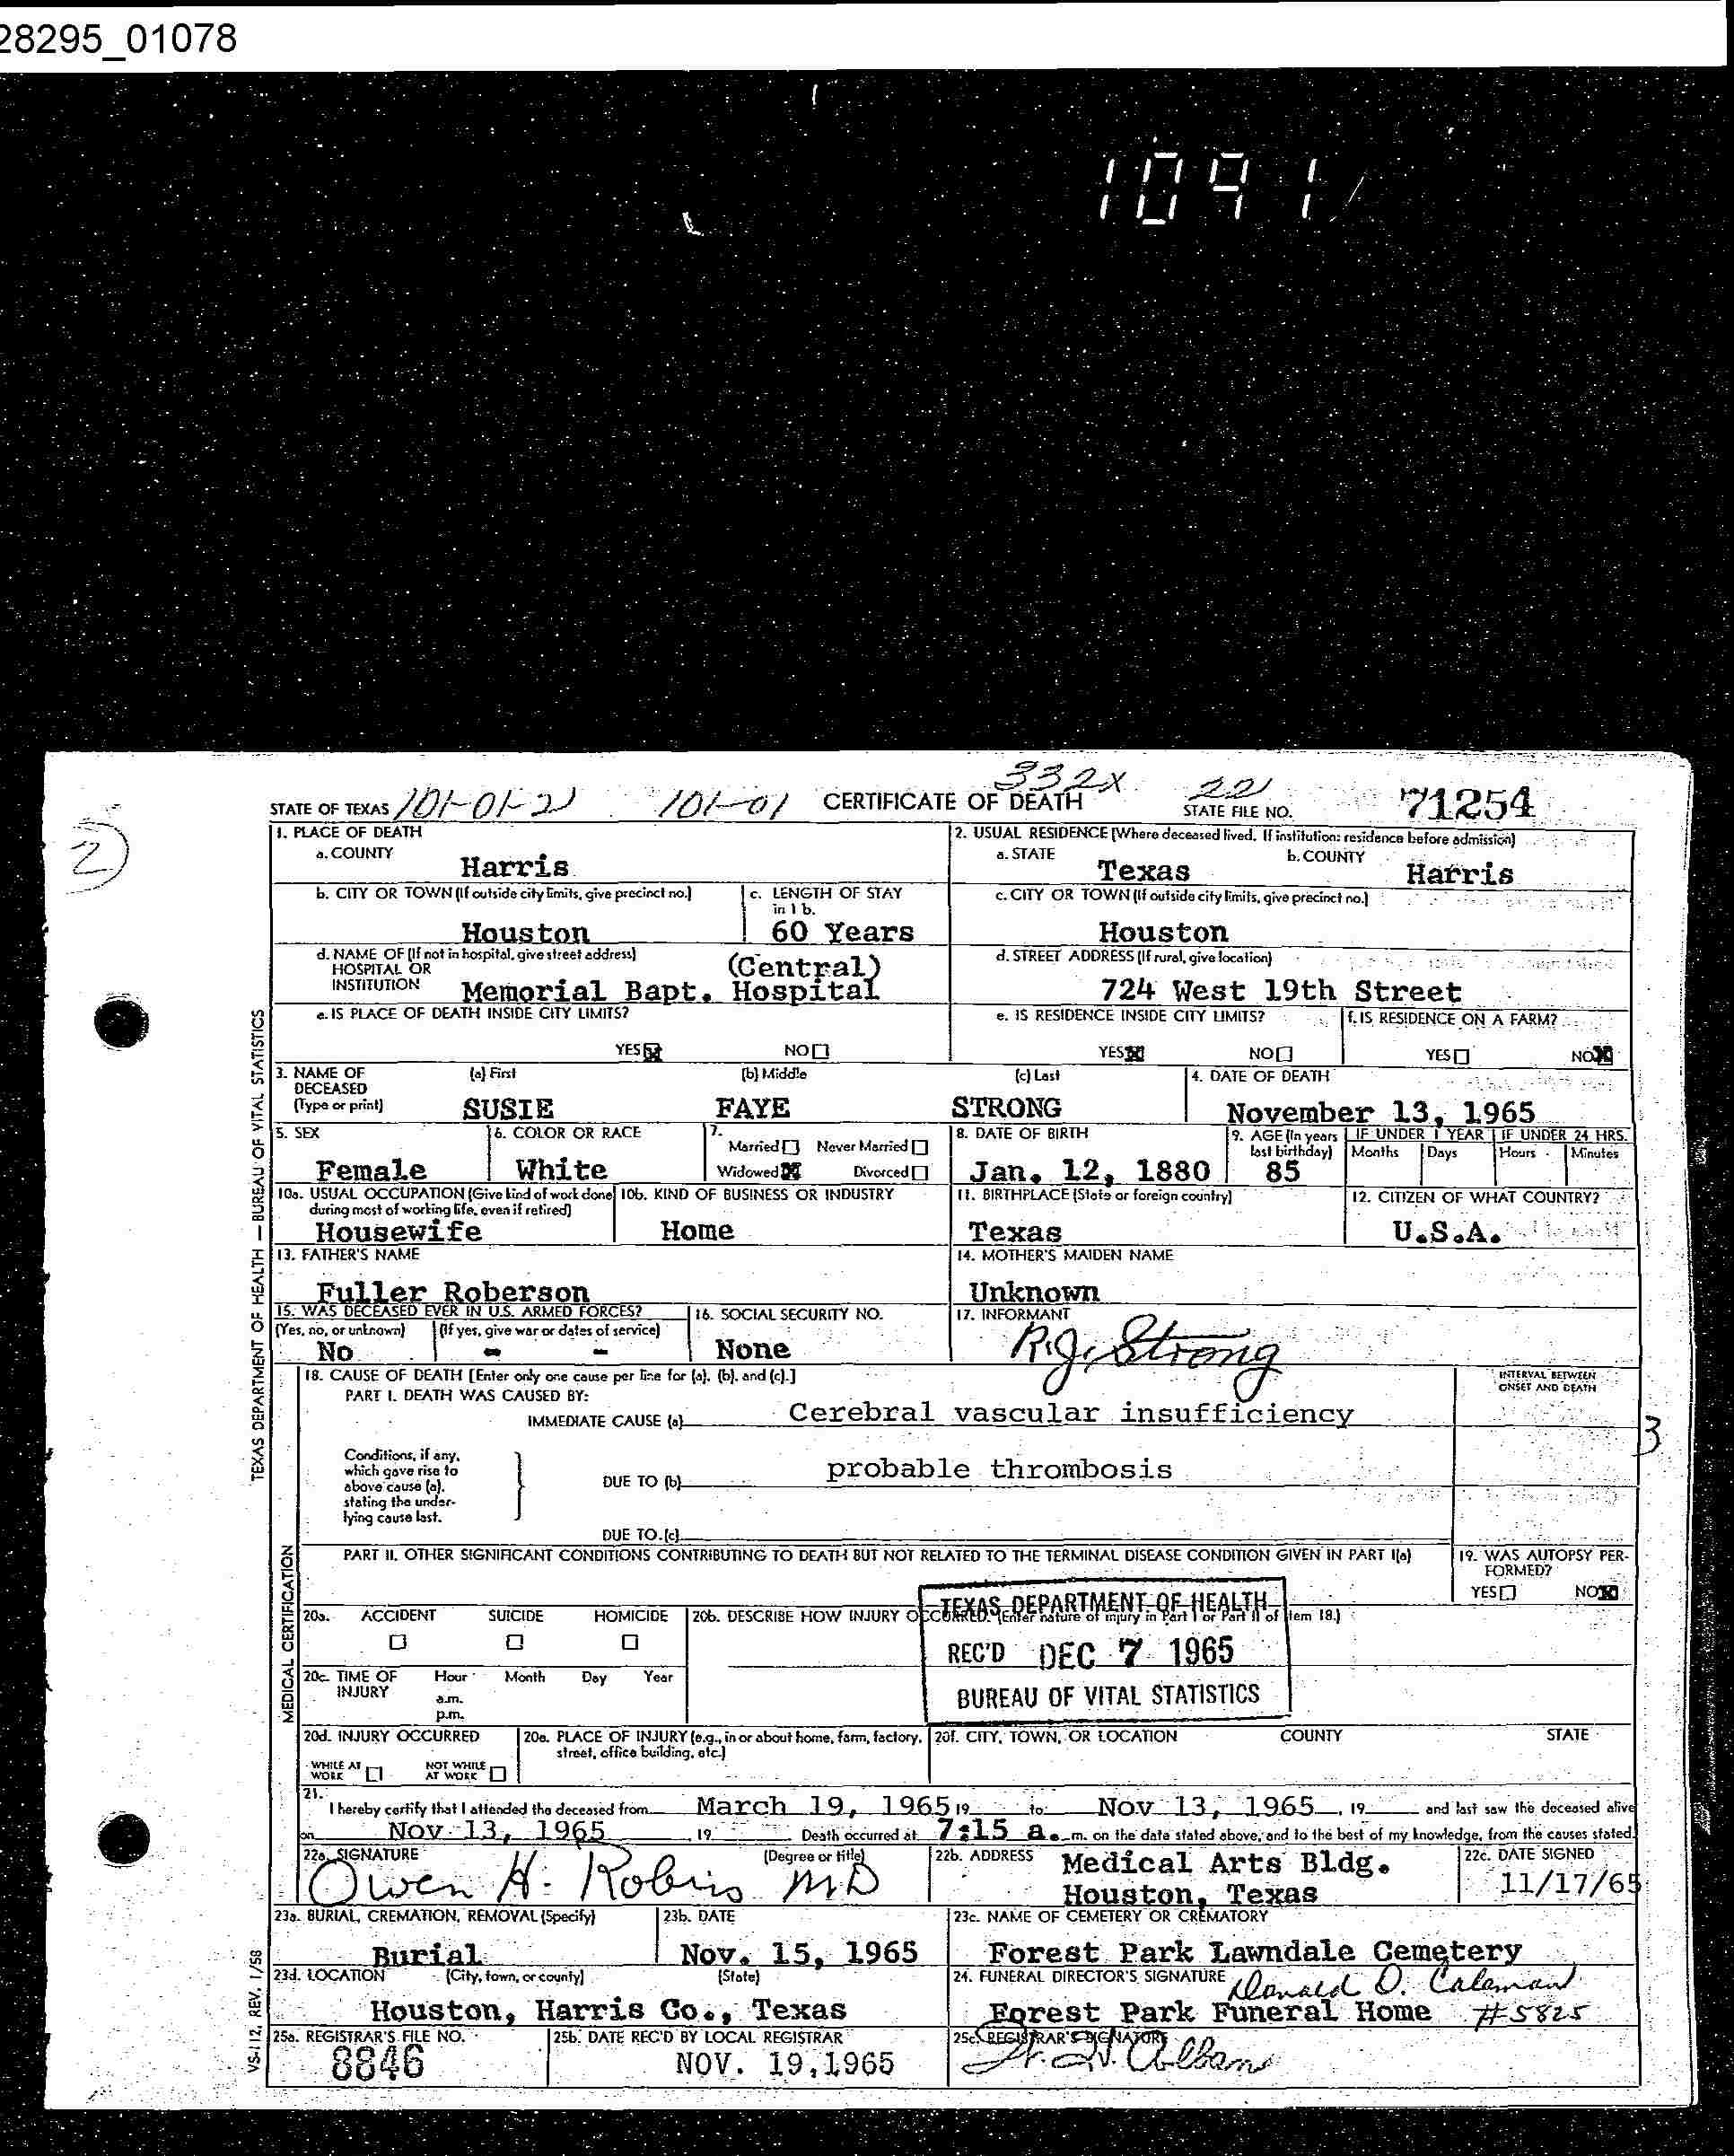 28295_01078
1091
332X 22
STATE OF TEXAS 101-01-2 101-01 CERTIFICATE OF DEATH STATE FILE NO. 71254
2
1. PLACE OF DEATH
a. COUNTY
Harris
2. USUAL RESIDENCE (Where deceased lived. If institution: residence before admission)
a. STATE
Texas
b. COUNTY
Harris
b. CITY OR TOWN (If outside city limits, give precinct no.)
Houston
c. LENGTH OF STAY
in 1 b.
60 Years
c. CITY OR TOWN (If outside city limits, give precinct no.)
Houston
d. NAME OF (If not in hospital, give street address)
HOSPITAL OR
INSTITUTION
(Central)
Memorial Bapt. Hospital
d. STREET ADDRESS (If rural, give location)
724 West 19th Street
e. IS PLACE OF DEATH INSIDE CITY LIMITS?
YES NO
e. IS RESIDENCE INSIDE CITY LIMITS?
YES NO
f. IS RESIDENCE ON A FARM?
YES NO
3. NAME OF
DECEASED
(Type or print)
(a) First
SUSIE
(b) Middle
FAYE
(c) Last
STRONG
4. DATE OF DEATH
November 13, 1965
5. SEX
Female
6. COLOR OR RACE
White
7.
Married Never Married
Widowed Divorced
8. DATE OF BIRTH
Jan. 12, 1880
9. AGE (In years
last birthday)
85
IF UNDER 1 YEAR
Months Days
IF UNDER 24 HRS.
Hours Minutes
10a. USUAL OCCUPATION (Give kind of work done
during most of working life, even if retired)
Housewife
10b. KIND OF BUSINESS OR INDUSTRY
Home
11. BIRTHPLACE (State or foreign country)
Texas
12. CITIZEN OF WHAT COUNTRY?
U.S.A.
13. FATHER'S NAME
Fuller Roberson
14. MOTHER'S MAIDEN NAME
Unknown
15. WAS DECEASED EVER IN U.S. ARMED FORCES?
(Yes, no, or unknown) (If yes, give war or dates of service)
No - -
16. SOCIAL SECURITY NO.
None
17. INFORMANT
R.J. Strong
18. CAUSE OF DEATH [Enter only one cause per line for (a), (b), and (c).]
PART I. DEATH WAS CAUSED BY:
INTERVAL BETWEEN
ONSET AND DEATH
IMMEDIATE CAUSE (a) Cerebral vascular insufficiency
3
Conditions, if any,
which gave rise to
above cause (a),
stating the under-
lying cause last.
DUE TO (b) probable thrombosis
DUE TO (c)
PART II. OTHER SIGNIFICANT CONDITIONS CONTRIBUTING TO DEATH BUT NOT RELATED TO THE TERMINAL DISEASE CONDITION GIVEN IN PART I(a)
19. WAS AUTOPSY PER-
FORMED?
YES NO
20a. ACCIDENT SUICIDE HOMICIDE
20b. DESCRIBE HOW INJURY OCCURRED. (Enter nature of injury in Part I or Part II of Item 18.)
TEXAS DEPARTMENT OF HEALTH
REC'D DEC 7 1965
BUREAU OF VITAL STATISTICS
20c. TIME OF
INJURY
Hour Month Day Year
a.m.
p.m.
20d. INJURY OCCURRED
WHILE AT
WORK
NOT WHILE
AT WORK
20e. PLACE OF INJURY (e.g., in or about home, farm, factory,
street, office building, etc.)
20f. CITY, TOWN, OR LOCATION COUNTY STATE
21.
I hereby certify that I attended the deceased from March 19, 1965 19 to Nov 13, 1965, 19 and last saw the deceased alive
on Nov 13, 1965, 19 Death occurred at 7:15 a. m. on the date stated above, and to the best of my knowledge, from the causes stated.
22a. SIGNATURE (Degree or title)
Owen H. Robins MD
22b. ADDRESS
Medical Arts Bldg.
Houston, Texas
22c. DATE SIGNED
11/17/65
23a. BURIAL, CREMATION, REMOVAL (Specify)
Burial
23b. DATE
Nov. 15, 1965
23c. NAME OF CEMETERY OR CREMATORY
Forest Park Lawndale Cemetery
23d. LOCATION (City, town, or county) (State)
Houston, Harris Co., Texas
24. FUNERAL DIRECTOR'S SIGNATURE
Donald O. Calaman
Forest Park Funeral Home #5825
25a. REGISTRAR'S FILE NO.
8846
25b. DATE REC'D BY LOCAL REGISTRAR
NOV. 19,1965
25c. REGISTRAR'S SIGNATURE
TEXAS DEPARTMENT OF HEALTH — BUREAU OF VITAL STATISTICS
MEDICAL CERTIFICATION
VS-112, REV. 1/58